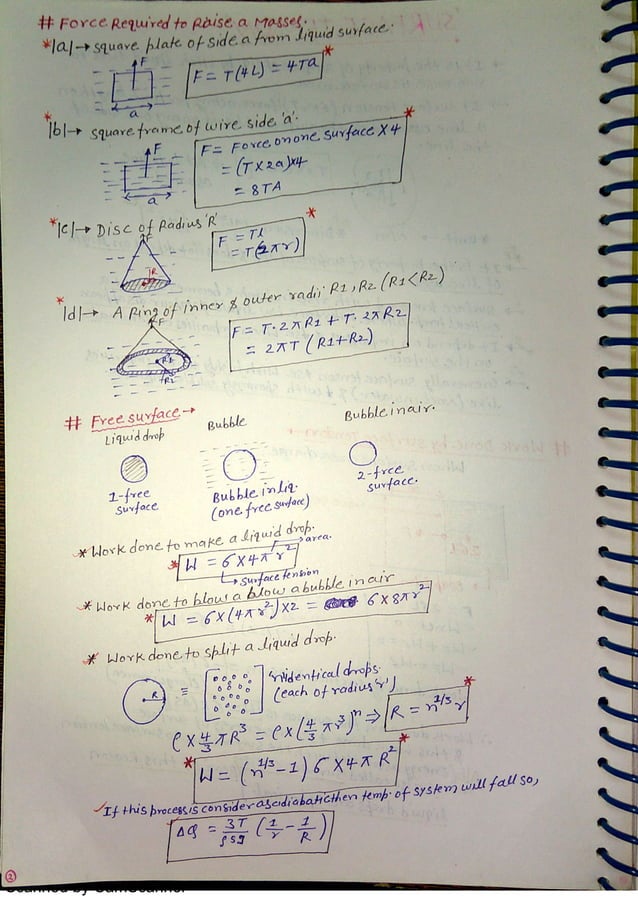 # Force Required to Raise a Masses.
*|a|→ square plate of side a from liquid surface.
F
a
F = T(4L) = 4Ta *
|b|→ square frame of wire side 'a'.
F
a
F = Force on one surface × 4 *
= (T×2a)×4
= 8TA
*|c|→ Disc of Radius 'R'
F
R
F = Tl *
= T(2πr)
*|d|→ A Ring of inner & outer radii R1, R2 (R1<R2)
F
R1
R2
F = T·2πR1 + T·2πR2
= 2πT (R1+R2)
# Free surface→
Liquid drop
1-free
surface
Bubble
Bubble in liq.
(one free surface)
Bubble in air.
2-free
surface.
* Work done to make a liquid drop.
* W = σ×4πr² →area.
→ Surface tension
* Work done to blow a blow a bubble in air
* W = σ×(4πr²)×2 = σ×8πr²
* Work done to split a liquid drop.
R
≡
'n' identical drops.
(each of radius 'r')
ρ×4/3πR³ = ρ×(4/3πr³)n ⇒ R = n^1/3 r *
* W = (n^1/3 −1) σ×4πR² *
✓If this process is consider as adiabatic then temp. of system will fall so,
Δθ = 3T/ρsg (1/r − 1/R)
②
Scanned by CamScanner